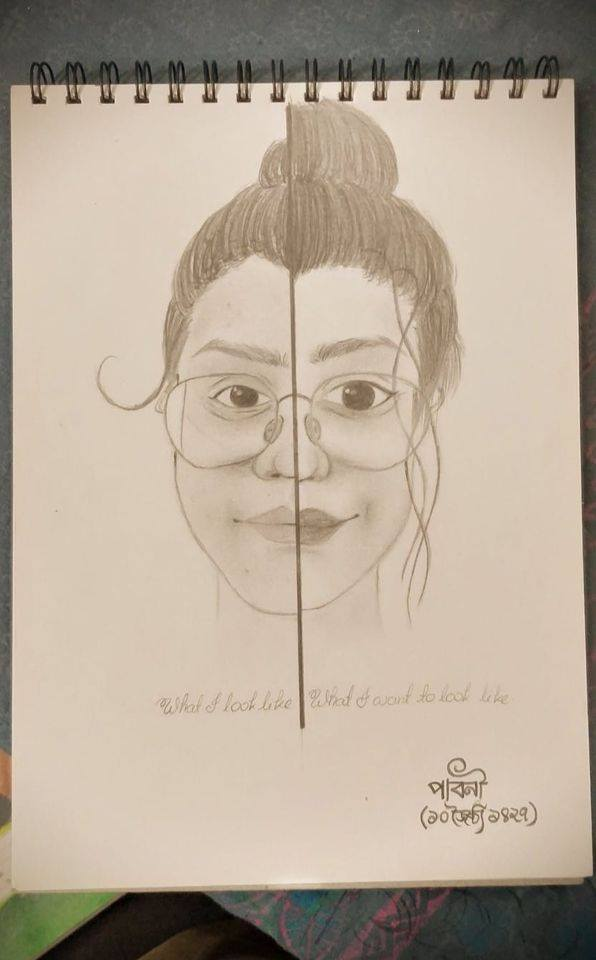 What I look like
What I want to look like
(১০ জৈষ্ঠ্য ১৪২৭)